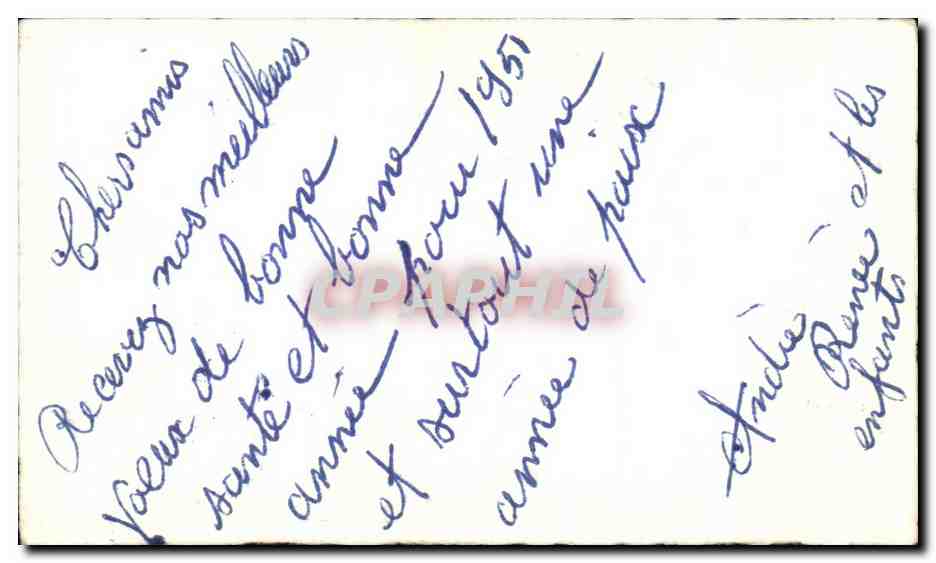 Chers amis
Recevez nos meilleurs
vœux de bonne
santé et bonne
année pour 1951
et surtout une
année de paix
André
Renée et les
enfants
CPAPHIL